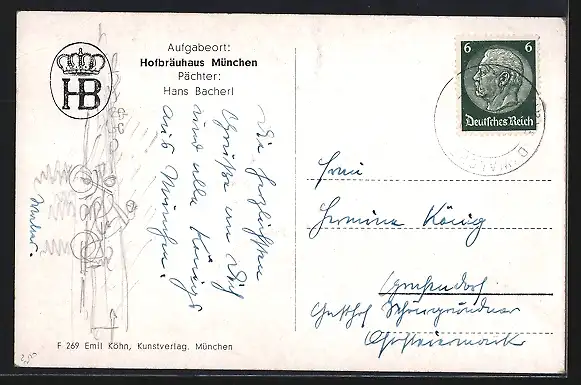 HB
Aufgabeort:
Hofbräuhaus München
Pächter:
Hans Bacherl
Die herzlichsten
Grüße an Dich
und alle Königs
aus München.
F 269 Emil Köhn, Kunstverlag, München
6 6
Deutsches Reich
Frau
Hermine König
Gasthof
Oststeiermark